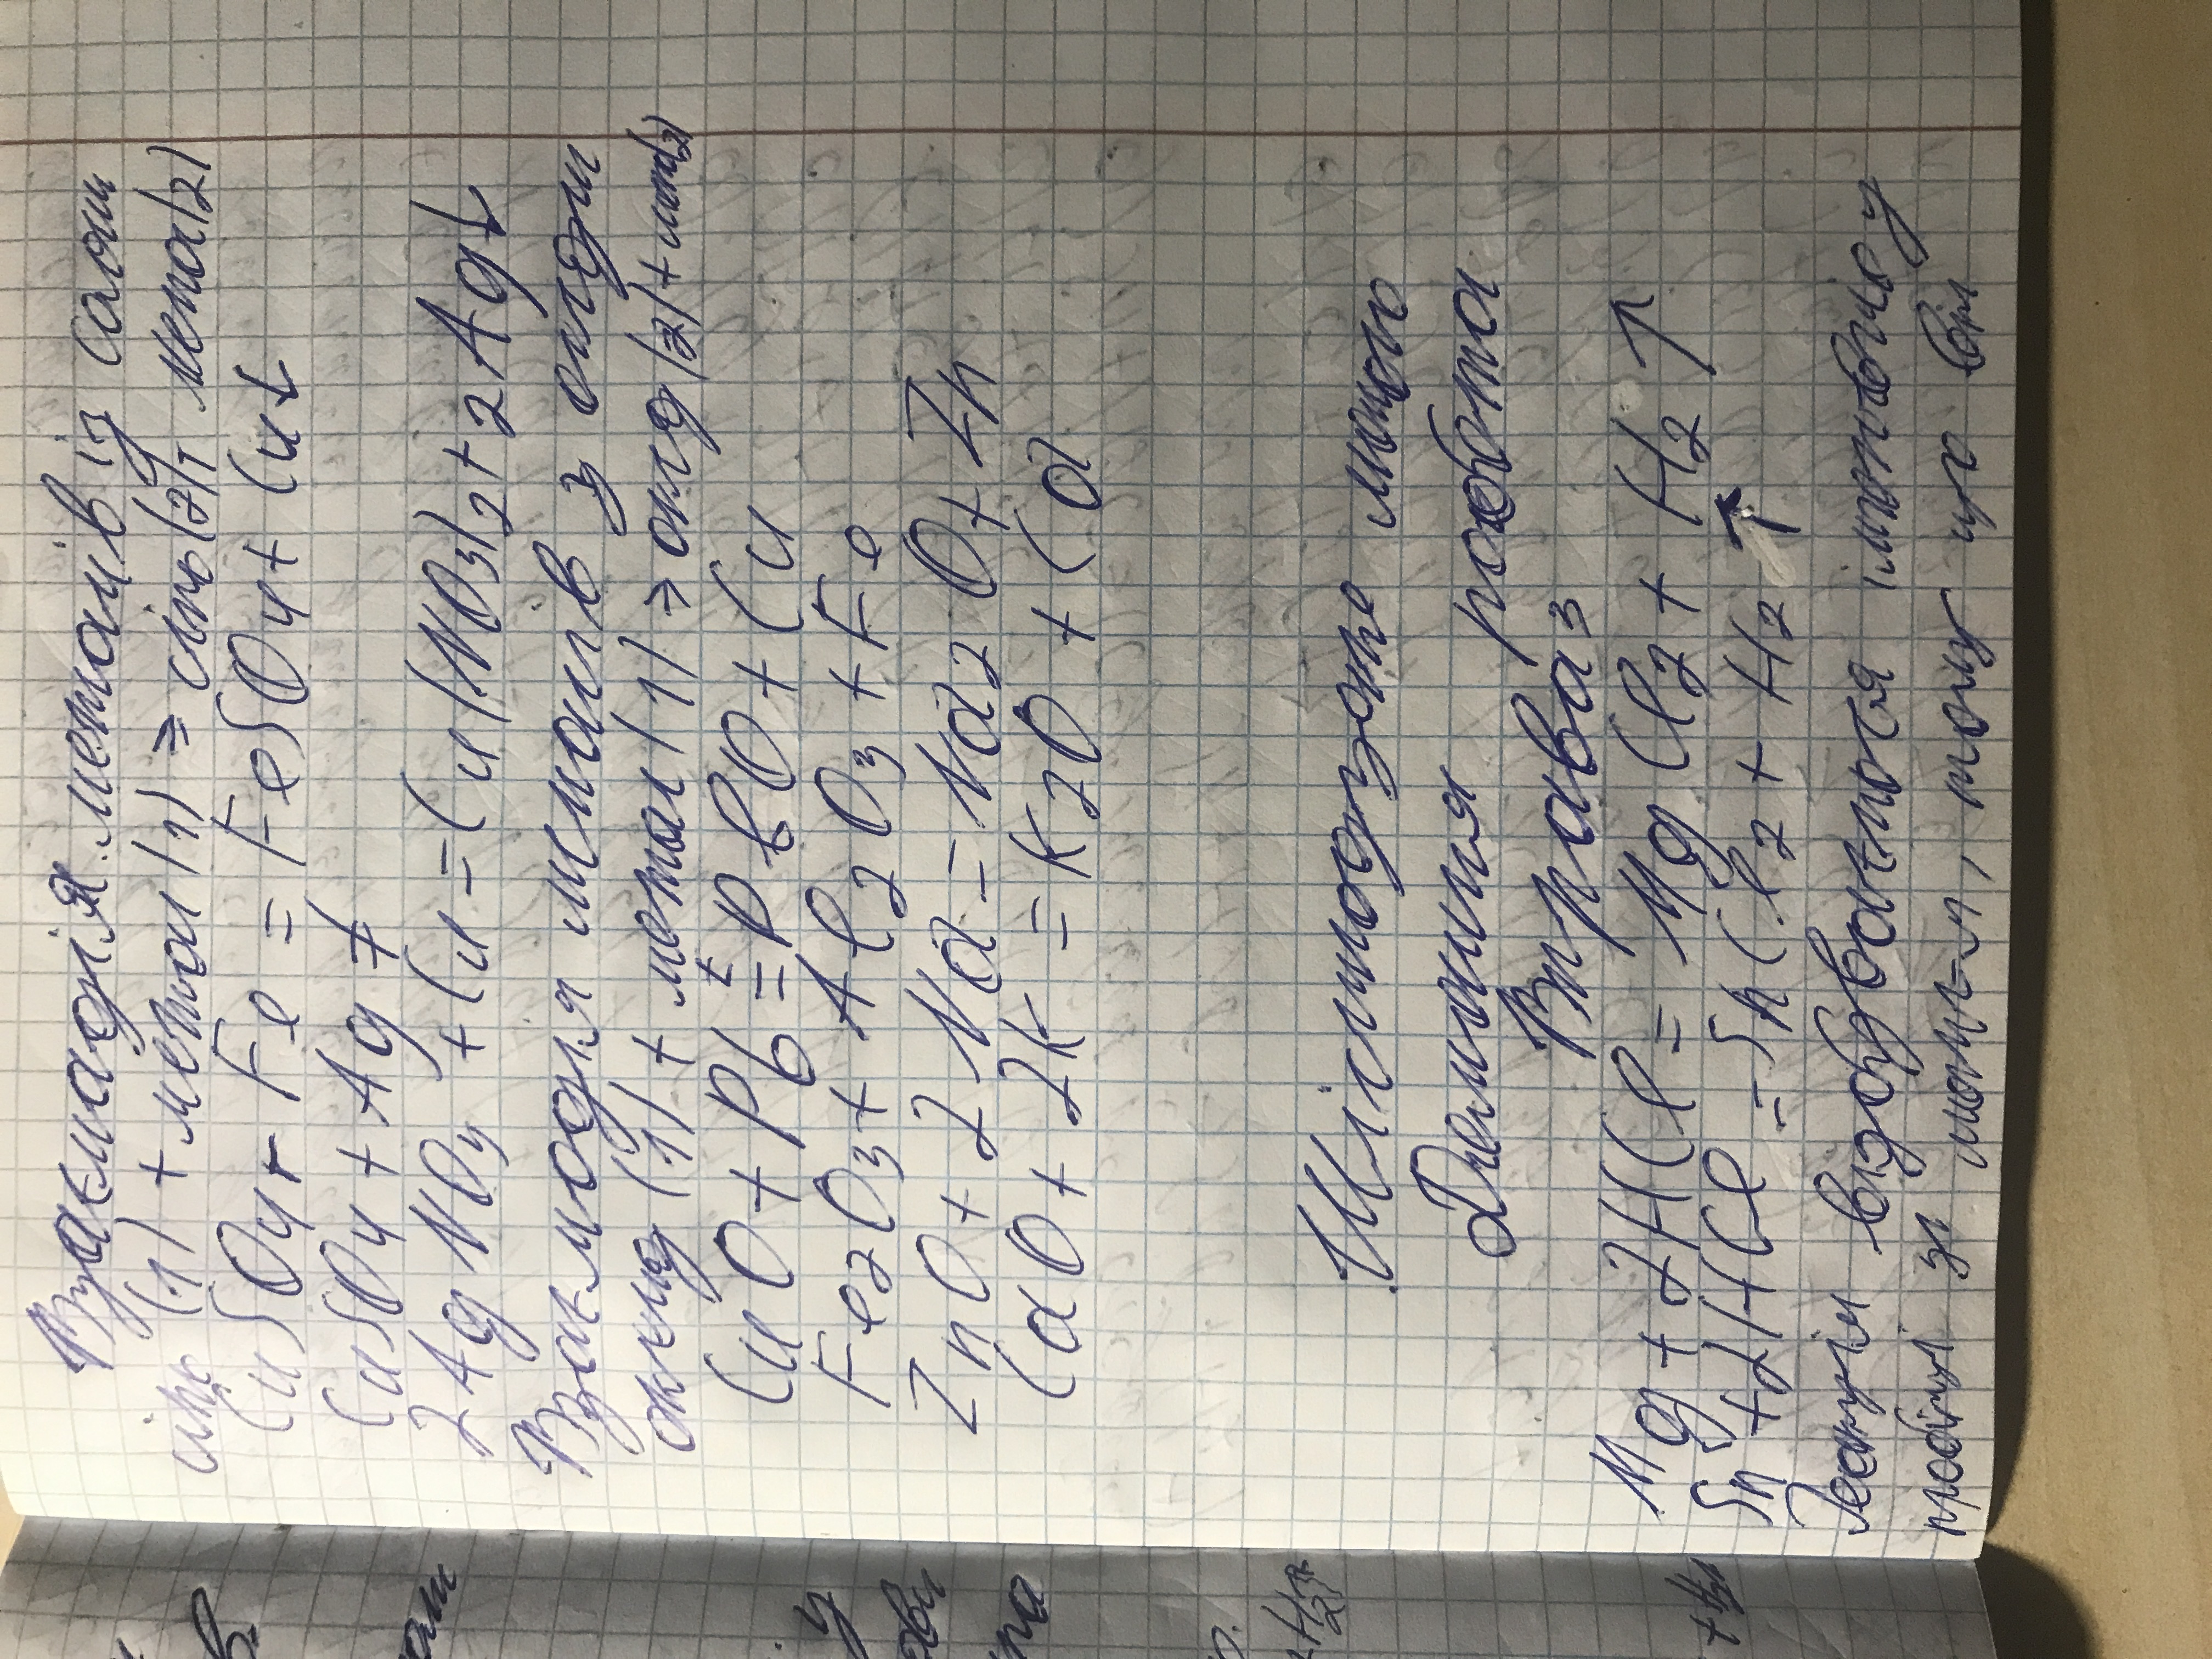 Взаємодія металів із солями
сіль (1) + метал (1) => сіль (2) + метал (2)
CuSO4 + Fe = FeSO4 + Cu↓
CuSO4 + Ag ≠
2AgNO4 + Cu = Cu(NO3)2 + 2Ag↓
Взаємодія металів з оксидом
оксид (1) + метал (1) => оксид (2) + метал (2)
CuO + Pb =t PbO + Cu
Fe2O3 + Al2O3 + Fe
ZnO + 2Na = Na2O + Zn
CaO + 2K = K2O + Ca
Шістнадцяте лютого
Домашня робота
Вправа 3
Mg + 2HCl = Mg Cl2 + H2↑
Sn + 2HCl = SnCl2 + H2↑
Реакція відбувається
у цих